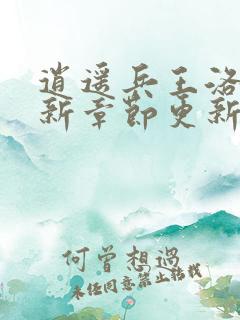 逍遥兵王洛
新章节更新
何曾想過
未经同意禁止转载